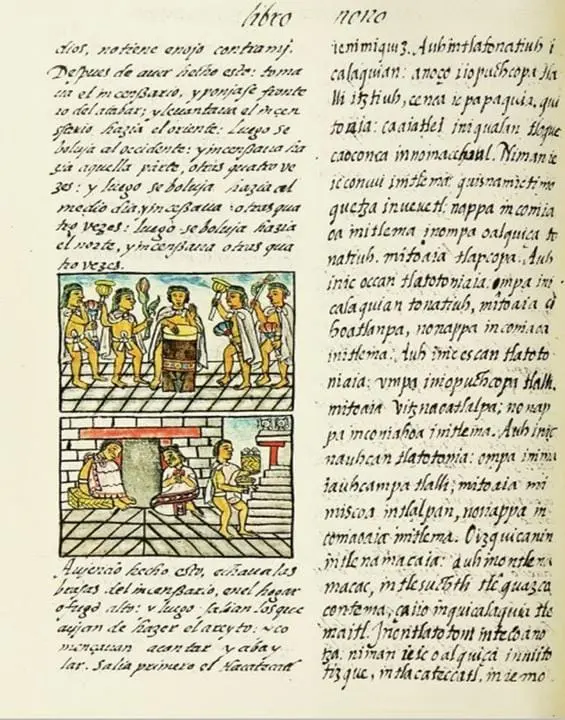 libro nono
dios, no tiene enojo contra mj.
Despues de auer hecho esto: toma
ua el incensario, y ponjase fronte
ro del atabal: y leuantaua el incen
sario hazia el oriente: luego se
boluja al occidente: y incensaua ha
zia aquella parte, otras quatro ve
zes: y luego se boluja hazia el
medio dia, y incensaua otras qua
tro vezes: luego se boluja hazia
el norte, y incensaua otras qua
tro vezes.
Aujendo hecho esto, echaua las
brasas del incensario, en el hogar
o fugõ alto: y luego salian los que
aujan de hazer el areyto: y co
mençauan a cantar y a bay
lar. Salia primero el tlacateccatl
icnimiqujz. Auh in tlatonatiuh i
calaquian: anoço iiopuchcopa tla
lli itztiuh, cenca ic papaquia, qui
toaia: ca aiatlei in iqualan tloque
Niman ic
ic concui in itlema:
quetza in vevetl: nappa in comia
oa in itlema, in ompa oalquiça to
natiuh. mitoaia tlapcopa. Auh
inic occan tlatotoniaia. ompa in i
calaquian tonatiuh, mitoaia ci
hoatlanpa, no nappa in comiaoa
in itlema. Auh inic escan tlatoto
niaia: vmpa in iopuchcopa tlalli.
mitoaia vitznaoatlalpa; no nap
pa in comiahoa in itlema. Auh inic
nauhcan tlatotonia: ompa in ima
iauhcampa tlalli; mitoaia mi
miscoa intlalpan, no nappa in
comiaoaia in itlema. Oizquicanin
in tlenamacaia: Auh in ontlena
macac, in tlecuchtli tlequazco
contema, ca iio in quicalaquia tle
maitl. In ontlatoton
tza: niman ie ic oalquiça in
tizque, in tlacateccatl, in iemo